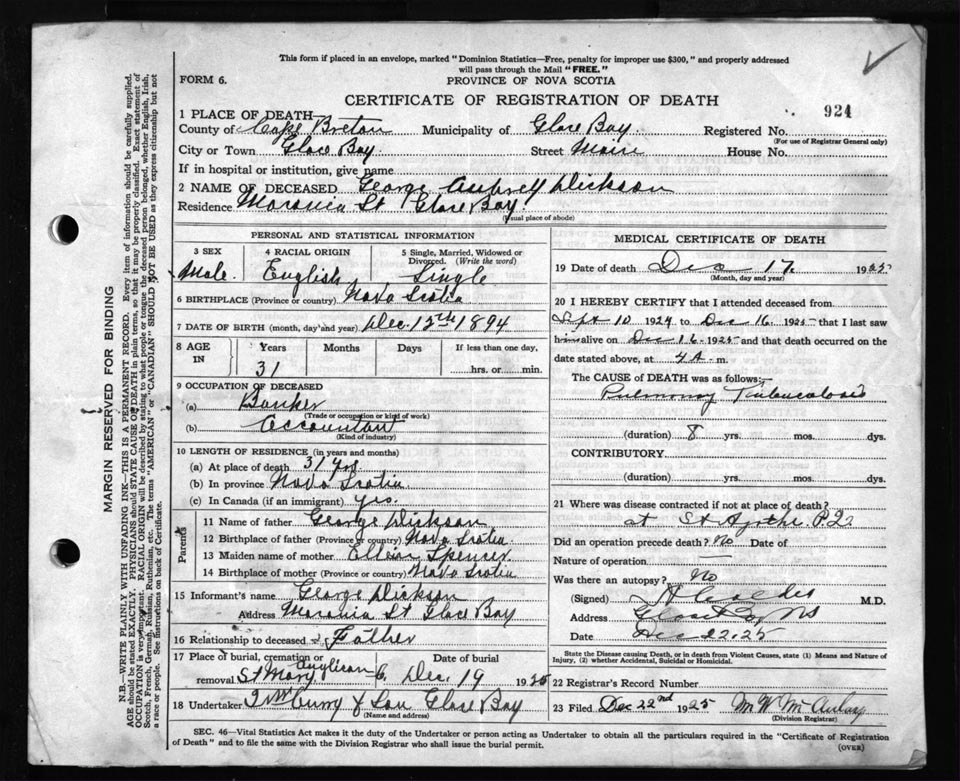 This form if placed in an envelope, marked "Dominion Statistics—Free, penalty for improper use $300," and properly addressed
will pass through the Mail "FREE."
FORM 6.
PROVINCE OF NOVA SCOTIA
CERTIFICATE OF REGISTRATION OF DEATH
924
1 PLACE OF DEATH
County of Cape Breton Municipality of Glace Bay Registered No.
(For use of Registrar General only)
City or Town Glace Bay Street Main House No.
If in hospital or institution, give name
2 NAME OF DECEASED George Aubrey Dickson
Residence St Glace Bay
(Usual place of abode)
PERSONAL AND STATISTICAL INFORMATION
3 SEX 4 RACIAL ORIGIN 5 Single, Married, Widowed or
Divorced. (Write the word)
Male. English Single
6 BIRTHPLACE (Province or country) Nova Scotia
7 DATE OF BIRTH (month, day and year) Dec. 12th 1894
8 AGE IN Years Months Days If less than one day,
31 hrs. or min.
9 OCCUPATION OF DECEASED
(a) Banker
(Trade or occupation or kind of work)
(b) Accountant
(Kind of industry)
10 LENGTH OF RESIDENCE (in years and months)
(a) At place of death 31 yrs
(b) In province Nova Scotia
(c) In Canada (if an immigrant) yes.
Parents
11 Name of father George Dickson
12 Birthplace of father (Province or country) Nova Scotia
13 Maiden name of mother Ellen Spencer
14 Birthplace of mother (Province or country) Nova Scotia
15 Informant's name George Dickson
Address St Glace Bay
16 Relationship to deceased Father
17 Place of burial, cremation or Date of burial
removal St Mary Anglican C. Dec 19 1925
18 Undertaker Curry & Son Glace Bay
(Name and address)
MEDICAL CERTIFICATE OF DEATH
19 Date of death Dec 17 1925
(Month, day and year)
20 I HEREBY CERTIFY that I attended deceased from
Sept 10 1924 to Dec 16 1925 that I last saw
him alive on Dec 16 1925 and that death occurred on the
date stated above, at 4 A. m.
The CAUSE of DEATH was as follows:
Pulmonary Tuberculosis
(duration) 8 yrs. mos. dys.
CONTRIBUTORY
(duration) yrs. mos. dys.
21 Where was disease contracted if not at place of death?
at St Agathe P.Q
Did an operation precede death? No Date of
Nature of operation —
Was there an autopsy? No
(Signed) M.D.
Address NS
Date Dec 22.25
State the Disease causing Death, or in death from Violent Causes, state (1) Means and Nature of
Injury, (2) whether Accidental, Suicidal or Homicidal.
22 Registrar's Record Number
23 Filed Dec 22nd 1925 M W McAulay
(Division Registrar)
SEC. 46—Vital Statistics Act makes it the duty of the Undertaker or person acting as Undertaker to obtain all the particulars required in the "Certificate of Registration
of Death" and to file the same with the Division Registrar who shall issue the burial permit.
(OVER)
MARGIN RESERVED FOR BINDING
N.B.—WRITE PLAINLY WITH UNFADING INK—THIS IS A PERMANENT RECORD. Every item of information should be carefully supplied.
AGE should be stated EXACTLY. PHYSICIANS should STATE CAUSE OF DEATH in plain terms, so that it may be properly classified. Exact statement of
OCCUPATION is very important. RACIAL ORIGIN will be described by stating to what people or tongue the deceased person belonged, whether English, Irish,
Scotch, French, German, Russian, Ruthenian, etc. The terms "AMERICAN" or "CANADIAN" SHOULD NOT BE USED as they express citizenship but not
a race or people. See instructions on back of Certificate.